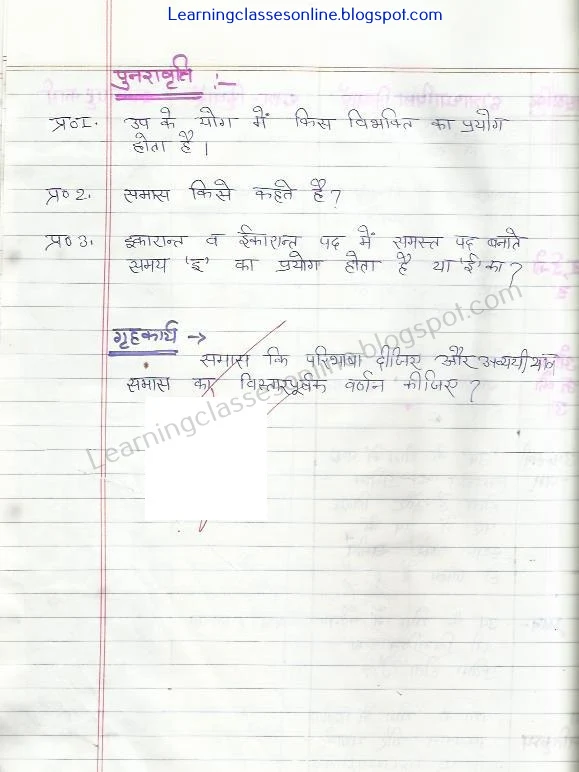 Learningclassesonline.blogspot.com
पुनरावृति :-
प्र०1. उप के योग में किस विभक्ति का प्रयोग
होता है।
प्र० 2. समास किसे कहते है?
प्र० 3. इकारान्त व ईकारान्त पद में समस्त पद बनाते
समय 'इ' का प्रयोग होता है या 'ई' का?
गृहकार्य →
समास कि परिभाषा दीजिए और अव्ययीभाव
समास का विस्तारपूर्वक वर्णन कीजिए?
Learningclassesonline.blogspot.com